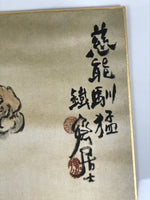 慈能馴猛
鐵居士